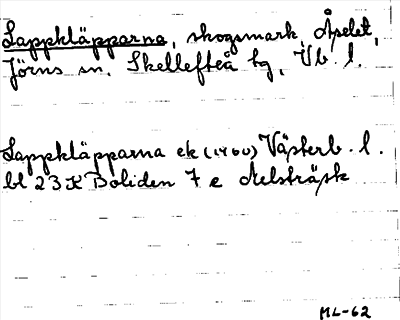 Lappkläpparna, skogsmark, Åselet,
Jörns sn, Skellefteå tg, Vb. l.
Lappkläpparna ek (1960) Västerb. l.
bl 23 K Boliden 7 e Melsträsk
ML-62